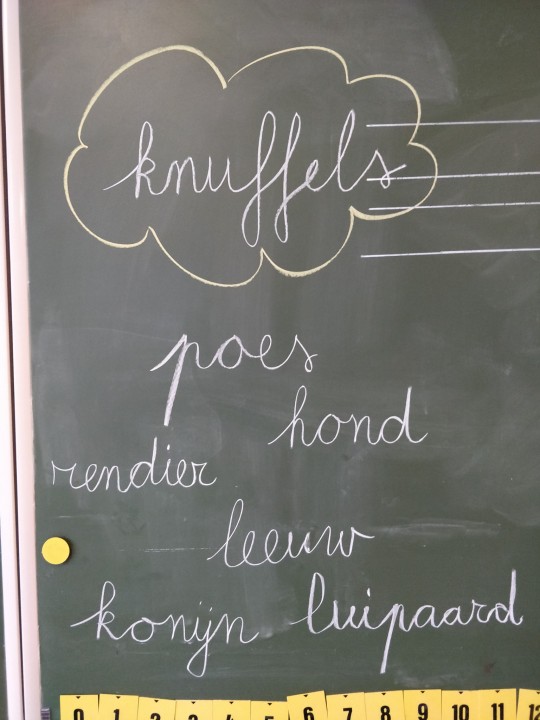 knuffels
poes
hond
rendier
leeuw
konijn luipaard
0 1 2 3 4 5 6 7 8 9 10 11 12